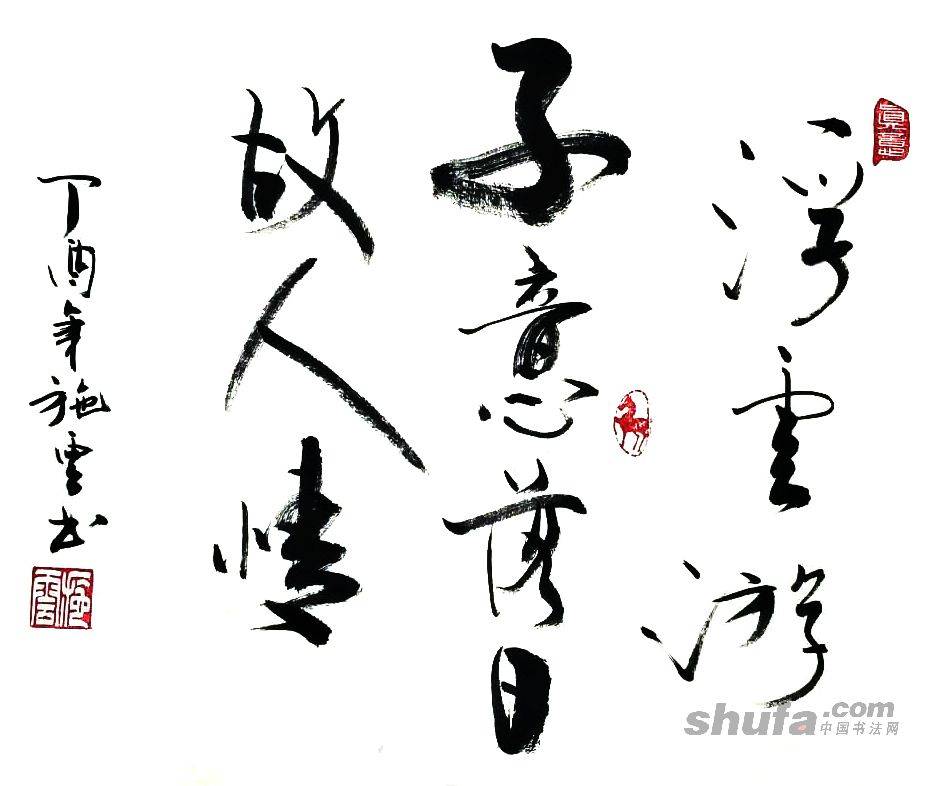 浮雲游
子意落日
故人情
丁酉年施雲书
施雲
shufa.com
中国书法网